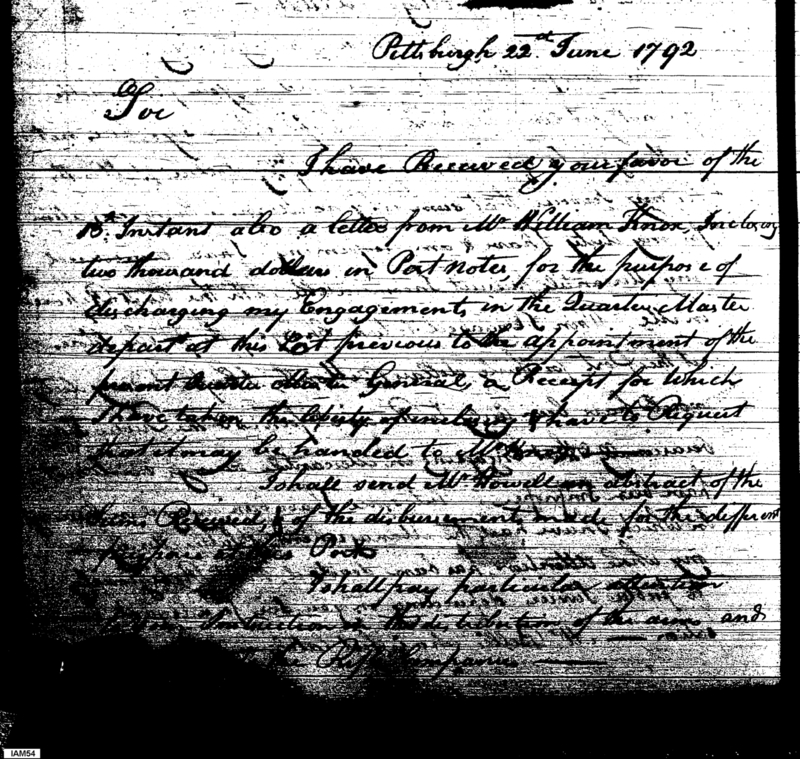 Pittsburgh 22d June 1792
Sir
I have Received your favor of the
15th Instant also a letter from Mr William Knox, Inclosing
two thousand dollars in Post notes for the purpose of
discharging my Engagements in the Quarter Master
depart at this Post previous to the appointment of the
present Quarter Master General, a Receipt for Which
I have taken the liberty of inclosing & have to Request
that it may be handed to Mr Knox
I shall send Mr Howell an abstract of the
Sums Received, & of the disbursements made for the different
purposes at this Post
I shall pay particular attention
to your Instructions in the distribution of the arms and
the Rifle Companies
IAM54